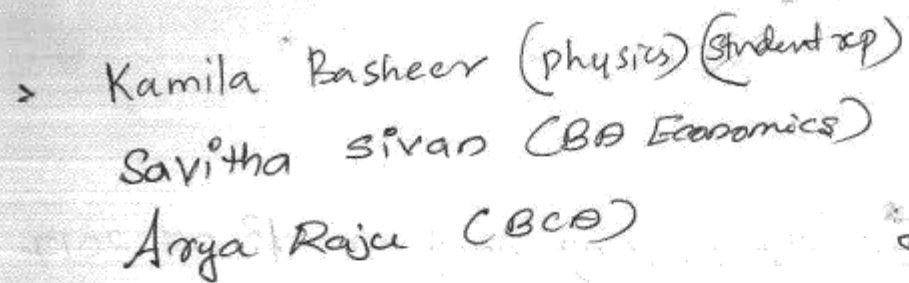 > Kamila Basheer (physics) (Student rep)
Savitha Sivan (BA Economics)
Arya Raju (BCA)